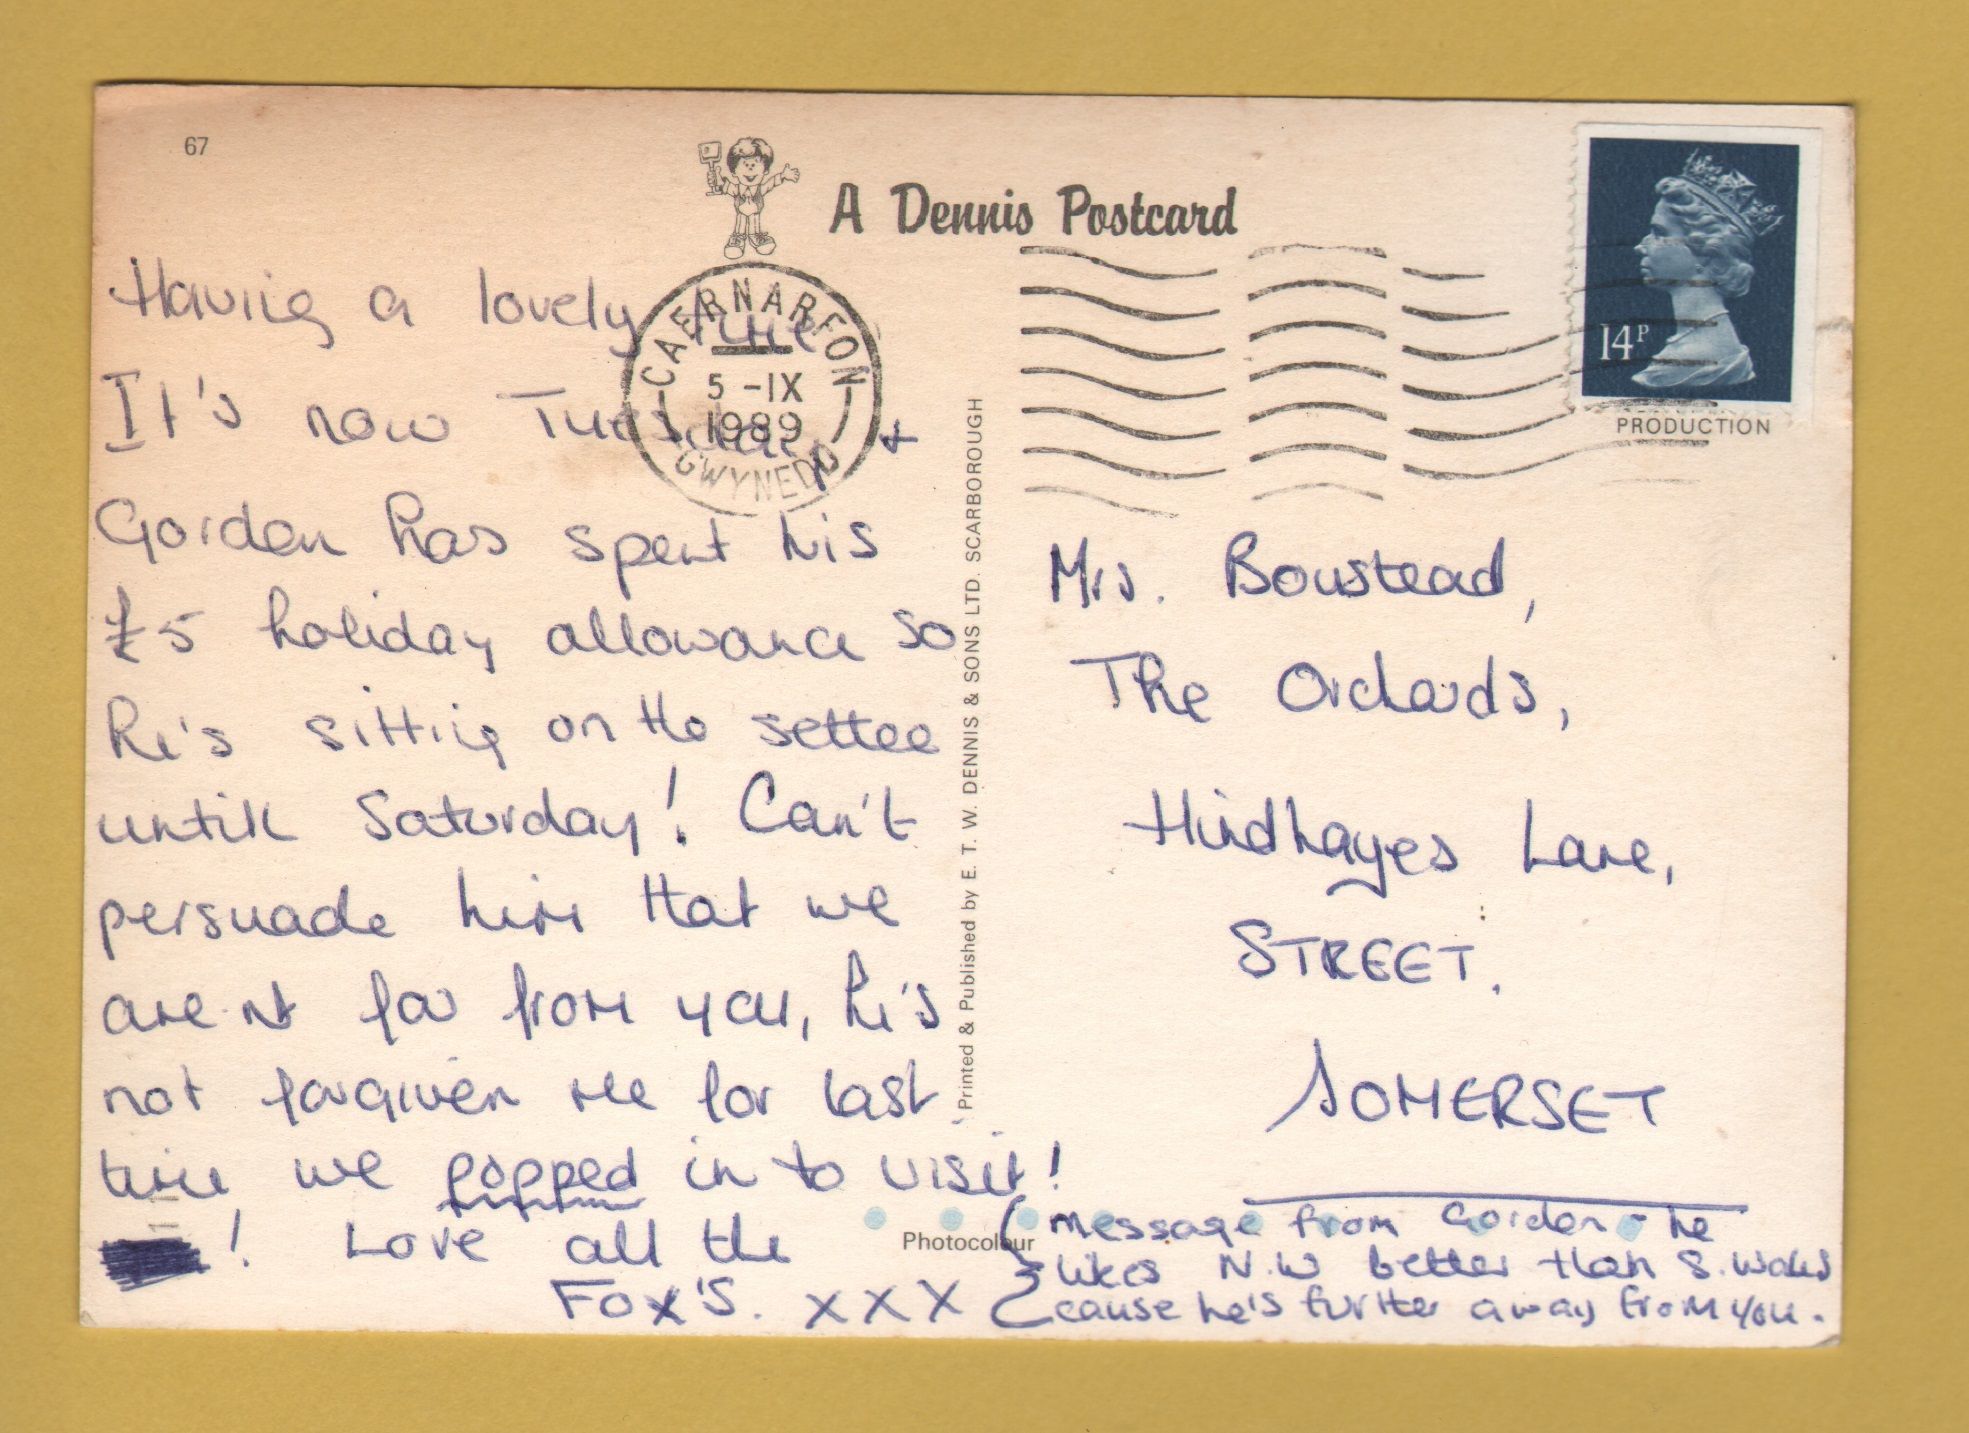 67
A Dennis Postcard
CAERNARFON
5 -IX
1989
GWYNEDD
14P
PRODUCTION
Having a lovely time
It's now Tuesday &
Gordon has spent his
£5 holiday allowance so
he's sitting on the settee
until Saturday! Can't
persuade him that we
are nt far from you, he's
not forgiven me for last
time we popped in to visit!
! Love all the
FOX'S. XXX
Printed & Published by E. T. W. DENNIS & SONS LTD. SCARBOROUGH
Mrs. Boustead,
The Orchards,
Hindhayes Lane,
STREET.
SOMERSET
Photocolour
(message from Gordon - he
likes N.W better than S. Wales
cause he's further away from you.